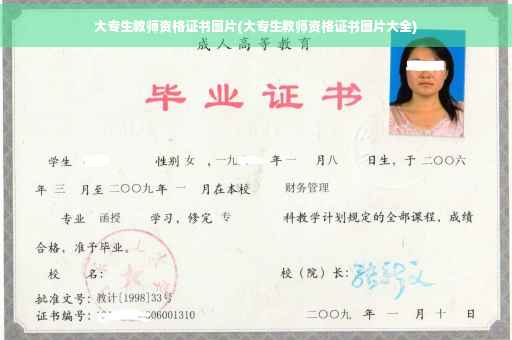 大专生教师资格证书图片(大专生教师资格证书图片大全)
成人高等教育
毕业证书
学生 性别 女 ，一九 年一 月八 日生，于二〇〇六
年 三 月至二〇〇九年 一 月在本校 财务管理
专业 函授 学习，修完 专 科教学计划规定的全部课程，成绩
合格，准予毕业。
校 名： 校（院）长：
批准文号：教计[1998]33号
证书编号： 06001310 二〇〇九 年 一 月 十 日